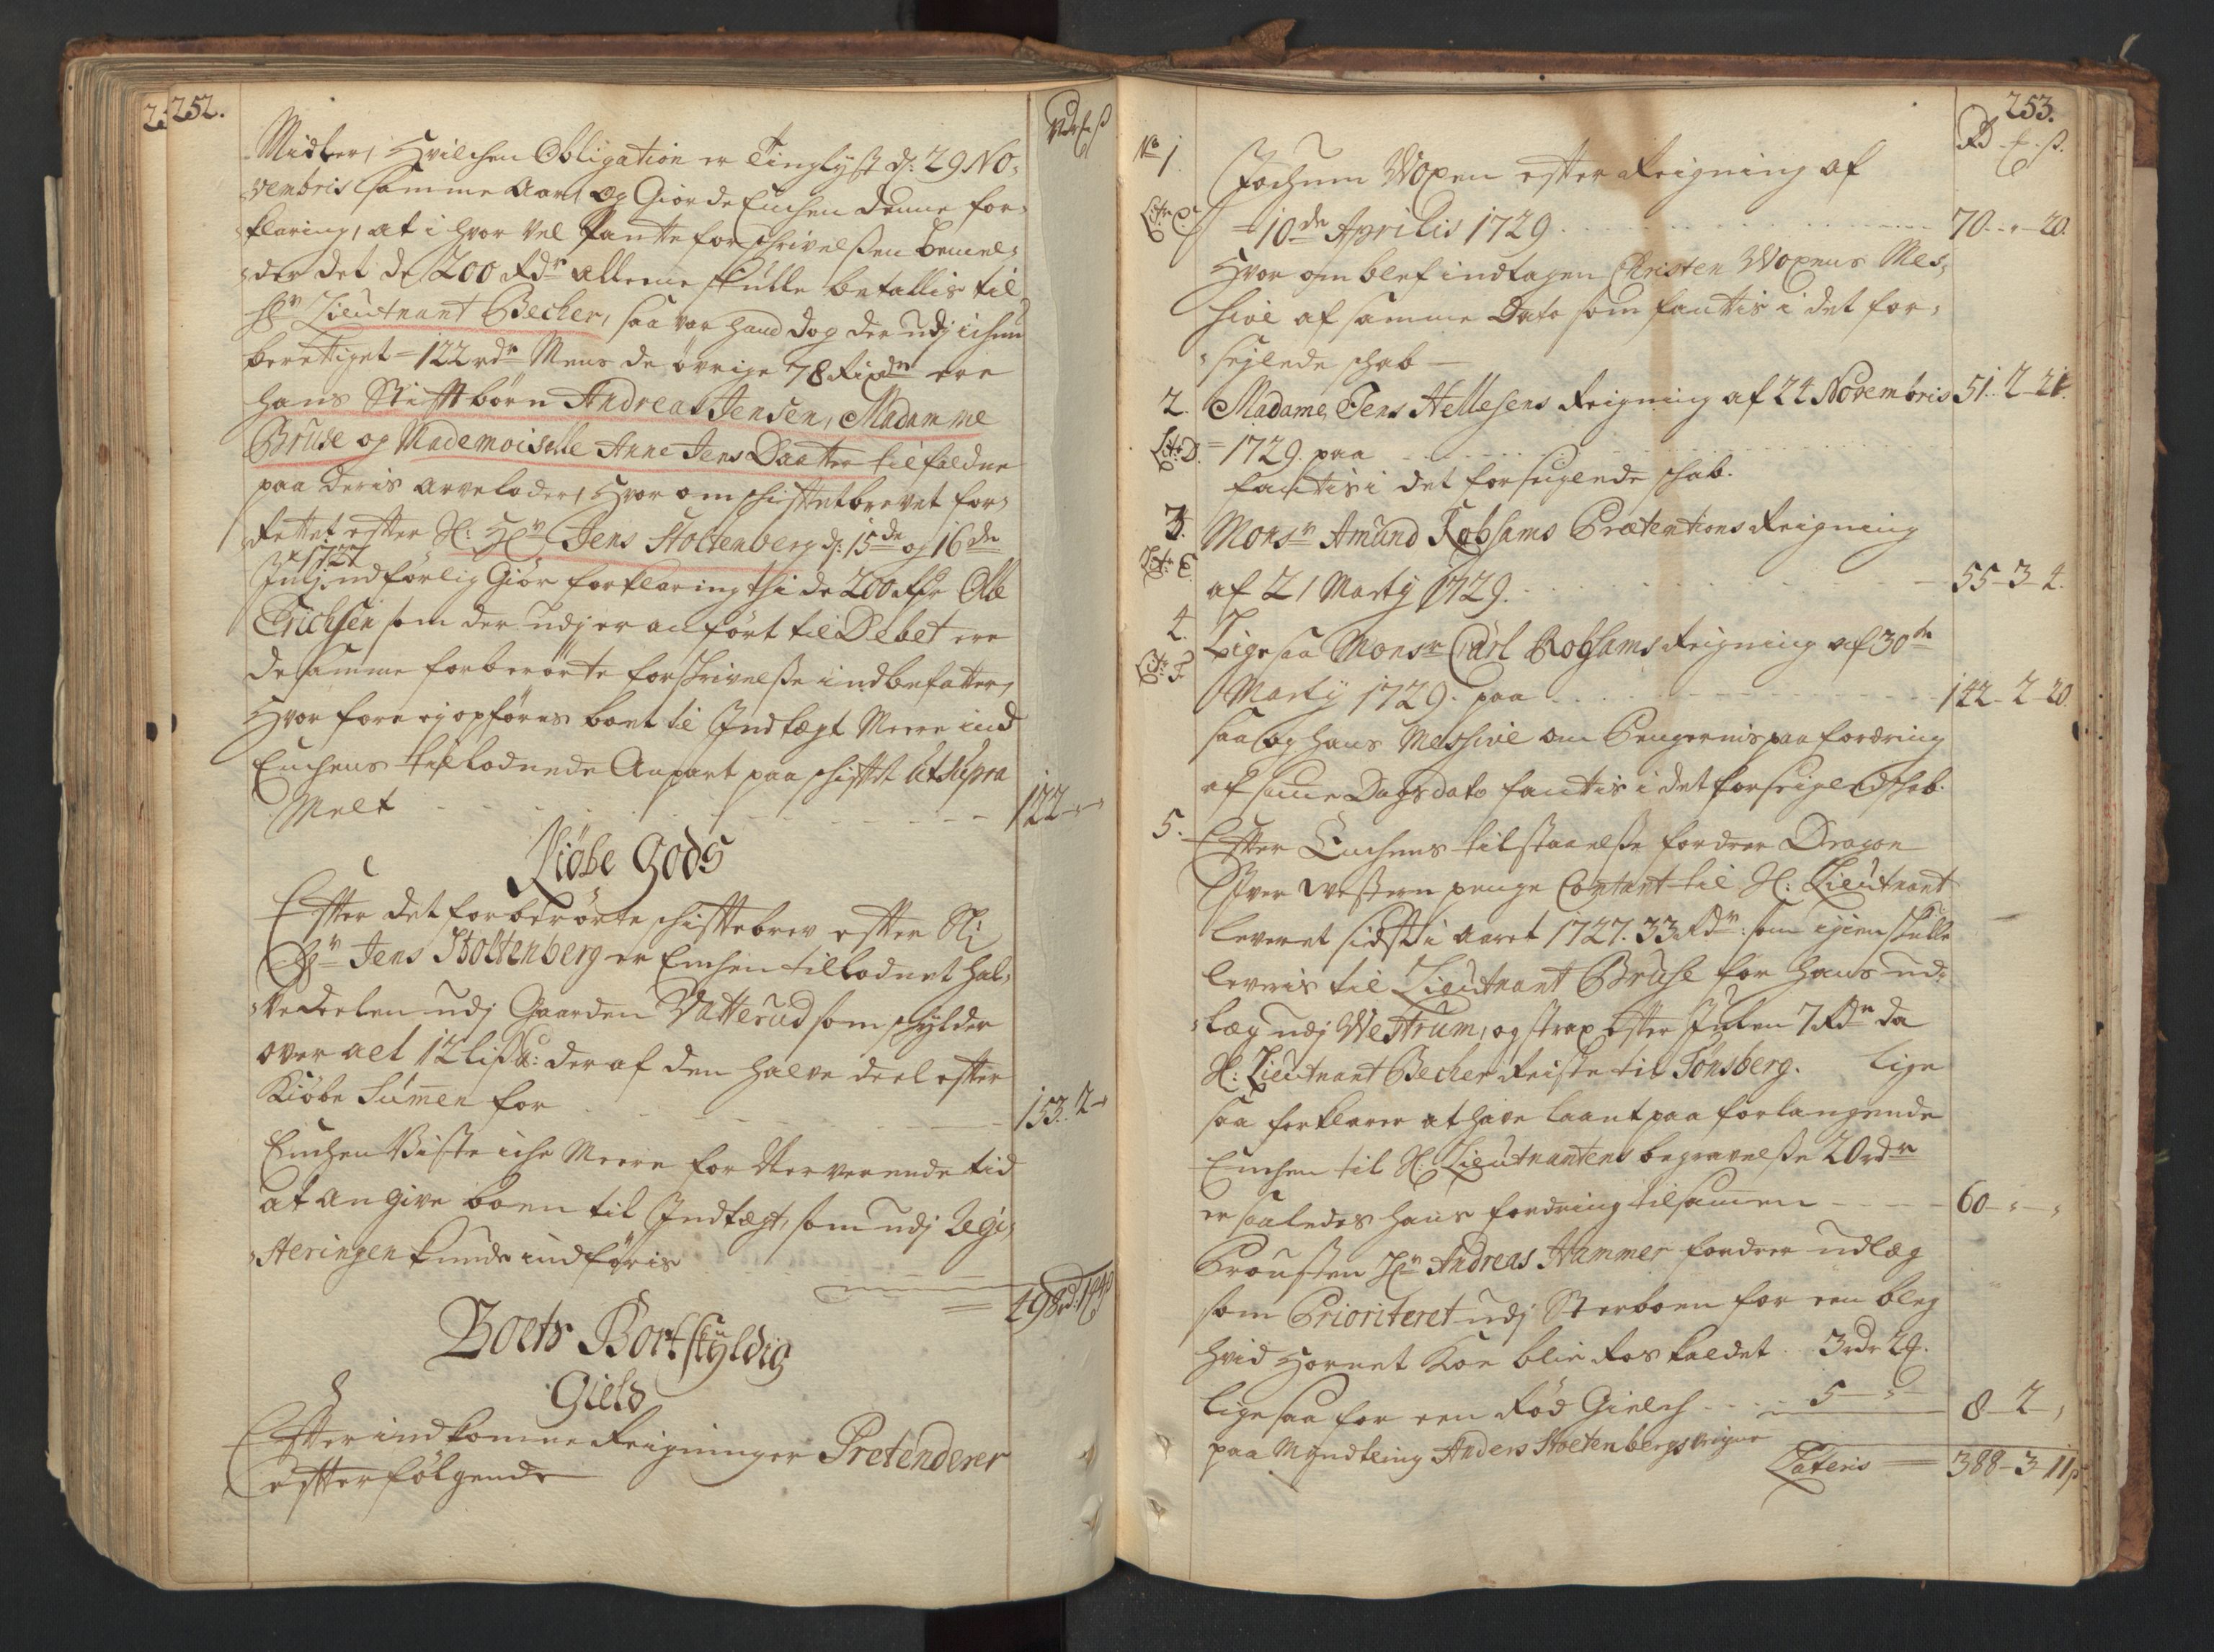 252.
Midler, Hvilchen Obligation er Tinglyst d: 29 No-
vembris samme Aar, og Giorde Enchen denne for-
klaring, at i hvor vel Panteforschrivelsen bemel-
der det de 200 Rdr alleene skulle betallis til
Hr Lieutnant Becher, saa var hand dog der udj ichun
berettiget = 122 rdr Mens de övrige 78 Rixdr ere
hans Stifbörn Andreas Jensen, Madamme
Bruse og Mademoiselle Anne Jens Daatter tilfaldne
paa deris arvelodder, Hvor om schiftebrevet for-
Rettet efter Sl: Hr Jens Stoltenberg d: 15de og 16de
Julj 1727 udförlig Giör forklaring thi de 200 Rdr Ole
Erichsen som der udj er anfört til Debet ere
de samme forberörte forschrivelse indbefatter,
Hvor fore ej opföres boet til Indtægt Meere end
Enchens tillodnede Anpart paa schiftet ut supra
Melt 122 - -
Kiöbe Gods
Efter det forberörte schiftebrev efter Sl:
Hr Jens Stoltenberg er Enchen tillodnet hal-
ve deelen udj Gaarden Vatterud som schylder
over alt 12 lispd: deraf den halve deel efter
Kiöbe Summen for 153. 2 -
Enchen Viste iche Meere for Nerverende tid
at angive boen til Indtægt, som udj Regi-
steringen kunde indföris
498 rd
Boets Bortskyldig
Gield
Efter indkomne Reigninger Pretenderer
efterfölgende
253.
Rd - ß.
No 1 Jochum Woxen efter Reigning af
Litr C. = 10de Aprilis 1729 70 - - 20.
Hvor om blef indtagen Christen Woxens Mes-
sive af samme Dato som fantis i det for-
seylede schab -
2. Madame Jens Hellesens Reigning af 24 Novembris 51. 2 - 21.
Litr D. = 1729. paa
fantis i det forseiglede schab.
3. Monsr Amund Robsams Prætentions Reigning
Litr E. af 21 Martij 1729. 55 - 3 - 4.
4. Ligesaa Monsr Carl Robsams Reigning af 30te
Litr F. Martij 1729. paa 142 - 2 - 20
saa og hans Messive om Pengernis paafordring
af samme Dags dato fantis i det forseiglede schab.
5. Efter Enchens tilstaaelse fordrer Dragon
Iver penge Contant til Sl: Lieutnant
leveret sidst i Aaret 1727. 33 Rdr: som igien skulle
leveris til Lieutnant Bruse for hans ud-
læg udj Westrum, og strax efter Julen 7 Rdr da
Sl: Lieutnant Becher Reiste til Tonsberg. Lige
saa forklarer at have laant paa forlangende
Enchen til Sl: Lieutnantens begravelse 20 rdr
er saaledes hans fordring tilsammen 60 - -
Hr Andreas Hammer fordrer udlæg
som Prioriteret udj Sterboen for een bleg
hvid Hornet Koe blie Ros kaldet 3 rdr 2
ligesaa for een Röd Gielch 5 - 8 - 2 -
paa Myndtling Anders Stoltenbergs veigne
Lateris 388 - 3 - 11 ß